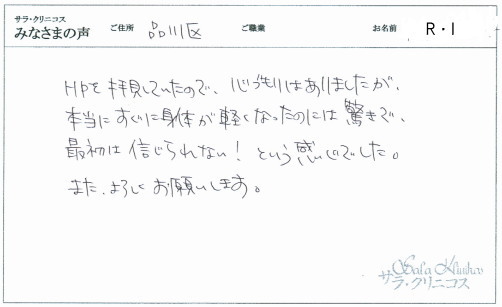 サラ・クリニコス
みなさまの声 ご住所 品川区 ご職業 お名前 R・I
HPを拝見していたので、心づもりはありましたが、
本当にすぐに身体が軽くなったのには驚きで、
最初は信じられない！という感じでした。
また、よろしくお願いします。
Sala Klinikos
サラ・クリニコス